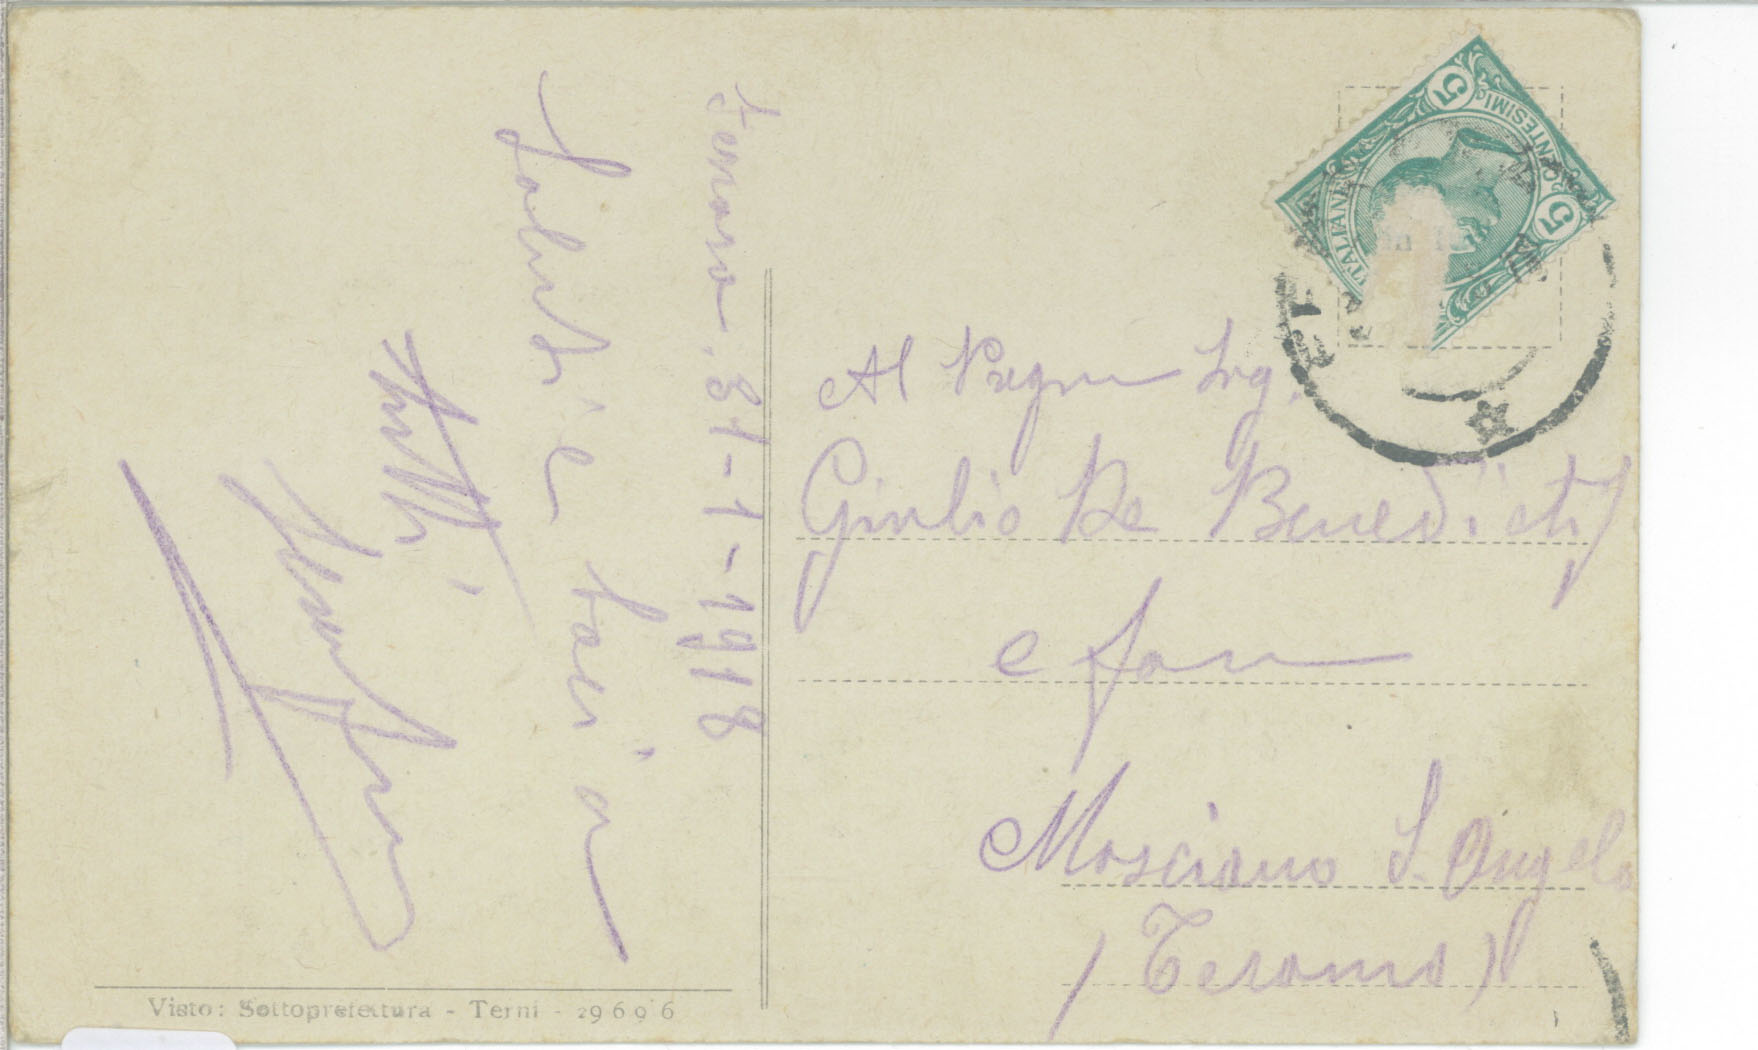 31-1-1918
Saluti e baci a
tutti
Al Pregm Ing.
Giulio De Benedictis
e fam
Mosciano S. Angelo
(Teramo)
Visto: Sottoprefettura - Terni - 29696
5 CENTESIMI 5